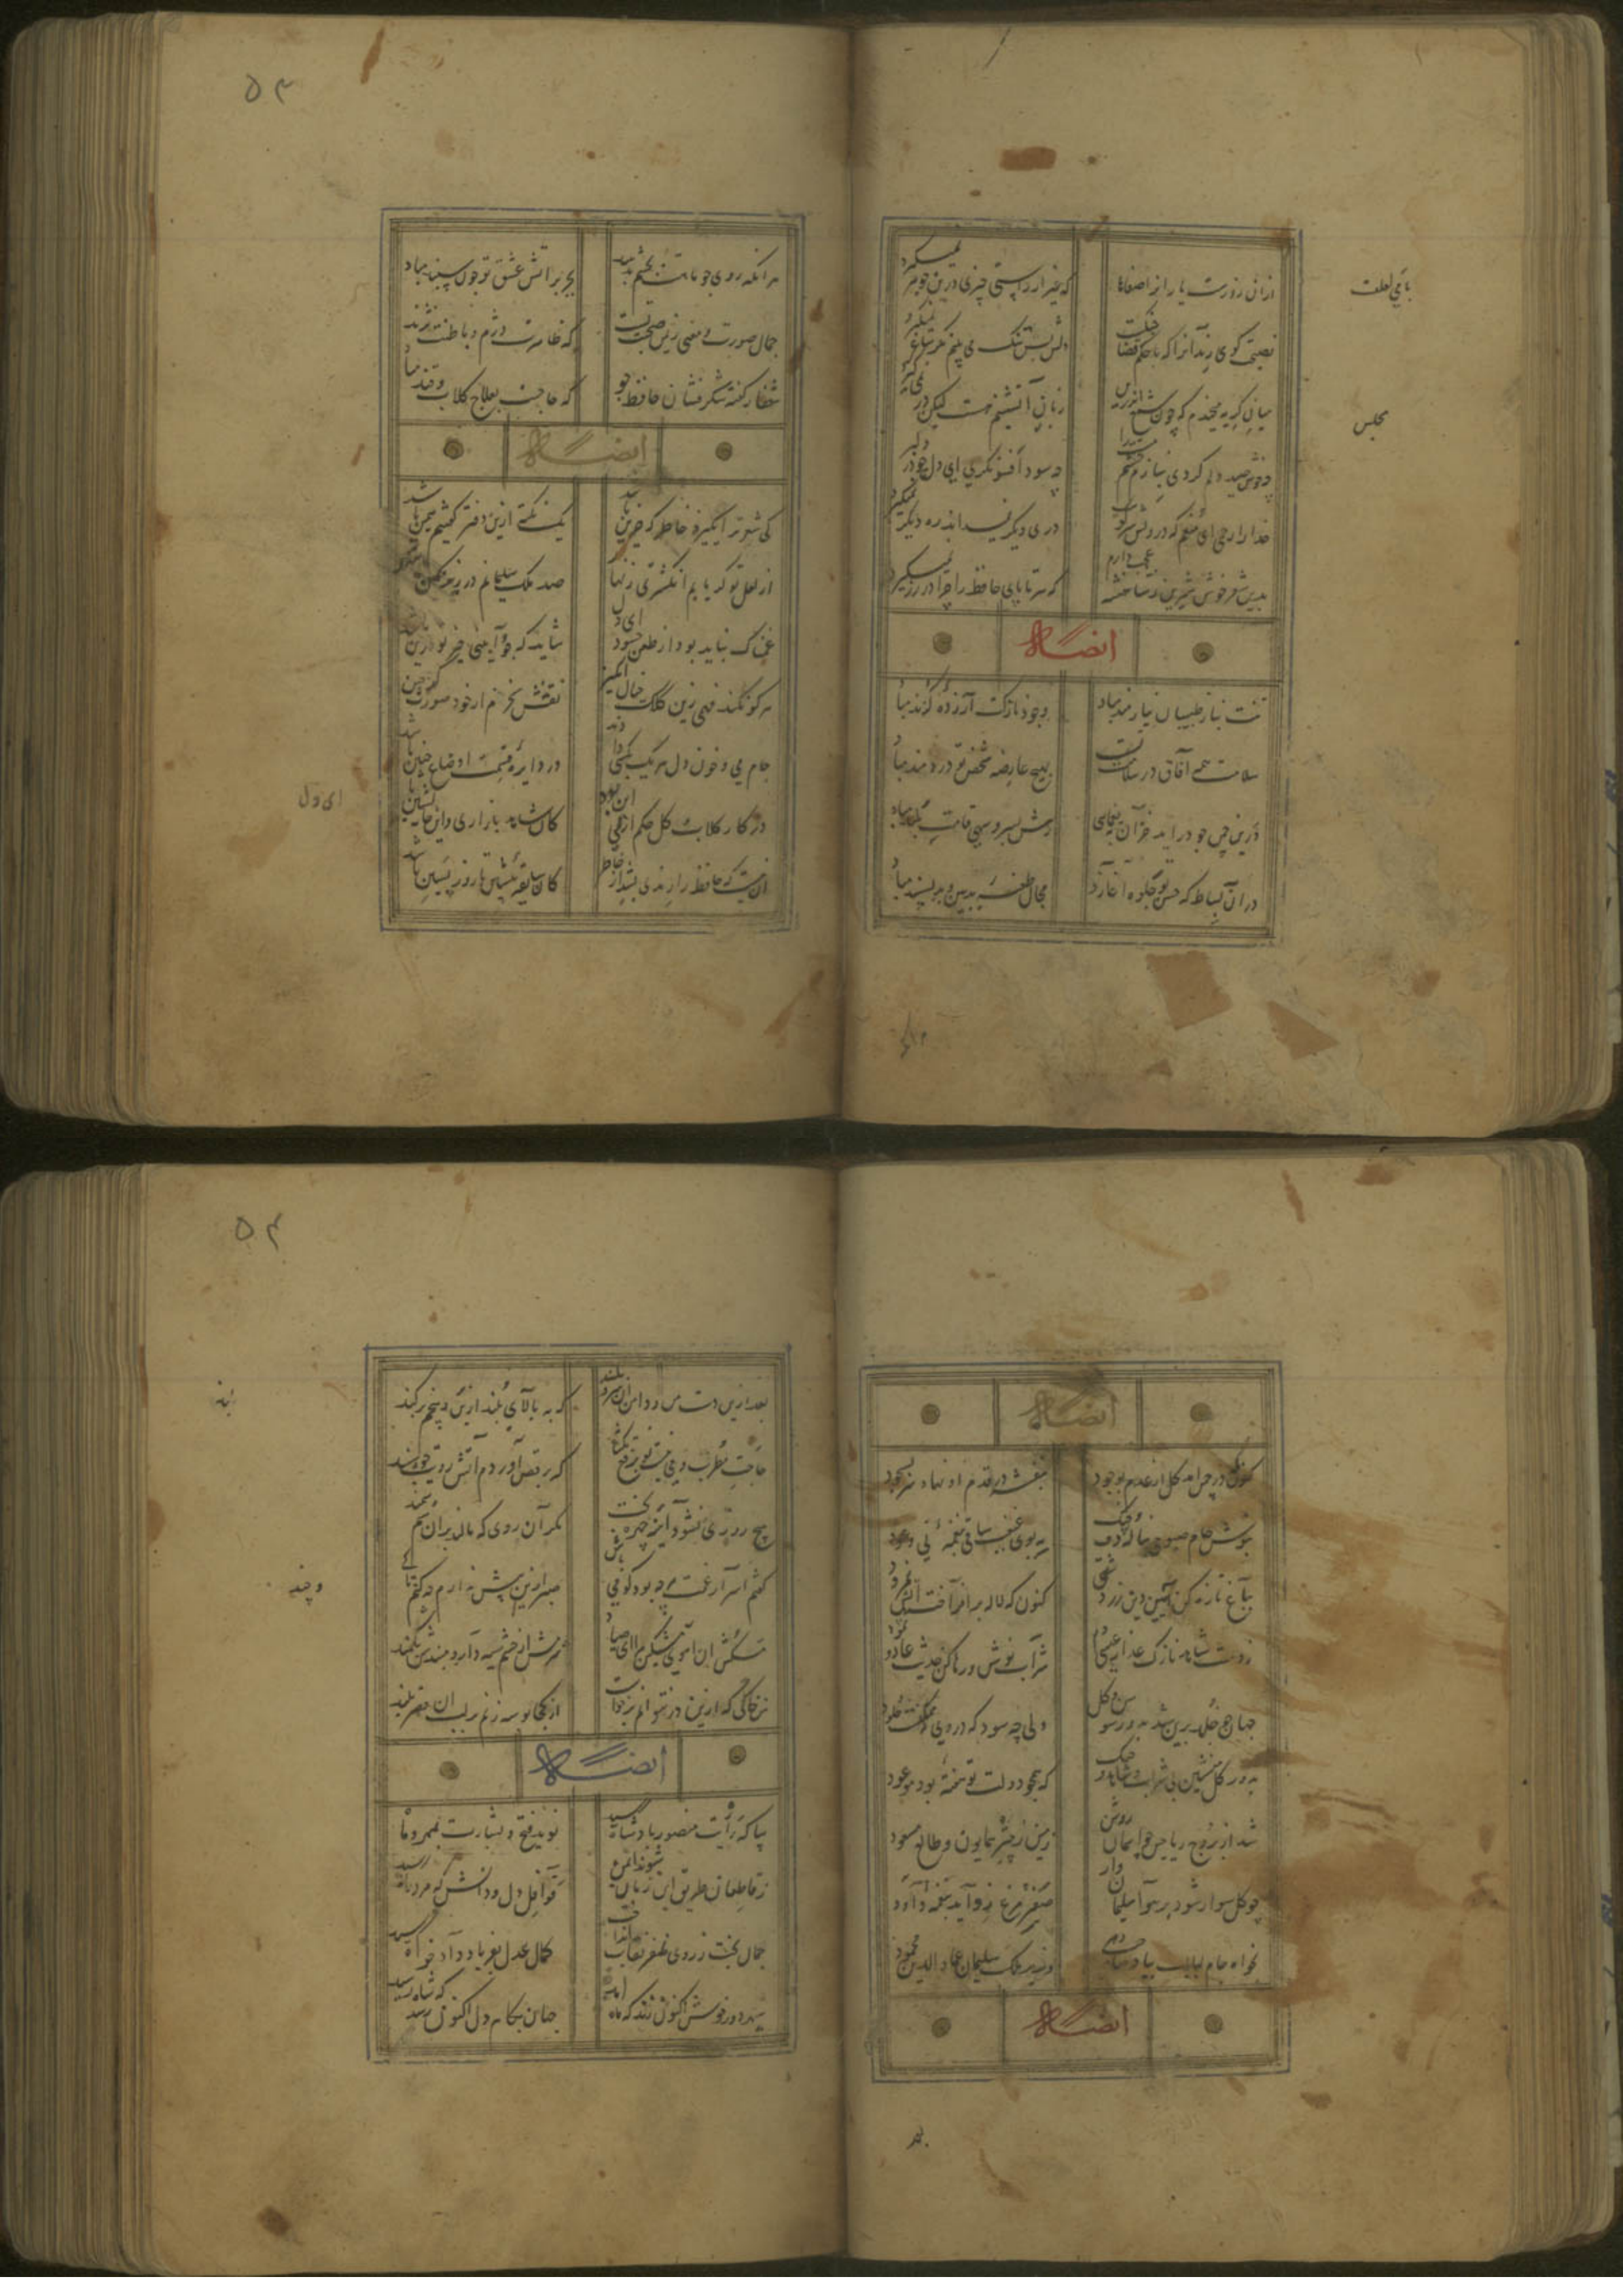 از آن رو هست یاران را صفاها با می لعلت
که غیر از راستی چیزی درین جوهر نمیگیرد
نصیحت گوی رندانرا که با حکم قضا جنگست
دلش بس تنگ می بینم مگر ساغر نمیگیرد
میان گریه میخندم که چون شمع اندرین مجلس
زبان آتشینم هست لیکن در نمی گیرد
چه خوش صید دلم کردی بنازم چشم مستت را
خدا را رحمی ای منعم که درویش سر کویت
دری دیگر نمیداند رهی دیگر نمیگیرد
بدین شعر خوش شیرین ز شاهنشه عجب دارم
که سر تا پای حافظ را چرا در زر نمیگیرد
ایضاً له
تنت بناز طبیبان نیازمند مباد
وجود نازکت آزرده گزند مباد
سلامت همه آفاق در سلامت تست
بهیچ عارضه شخص تو دردمند مباد
درین چمن چو در آید خزان بیغمایی
رهش بسرو سهی قامت بلند مباد
در آن بساط که حسن تو جلوه آغازد
مجال طعنه بدبین و بدپسند مباد
۵۳
هر آنکه روی چو ماهت بچشم بد بیند
بجز بر آتش عشق تو چون سپند مباد
جمال صورت و معنی ز یمن صحت تست
که ظاهرت دژم و باطنت نژند مباد
شفا ز گفته شکرفشان حافظ جو
که حاجتت بعلاج گلاب و قند مباد
ایضاً له
کی شعر تر انگیزد خاطر که حزین باشد
یک نکته ازین دفتر گفتیم همین باشد
از لعل تو گر یابم انگشتری زنهار
صد ملک سلیمانم در زیر نگین باشد
غمناک نباید بود از طعن حسود ای دل
شاید که چو وابینی خیر تو درین باشد
هر کو نکند فهمی زین کلک خیال انگیز
نقشش نخرم ار خود صورتگر چین باشد
جام می و خون دل هر یک بکسی دادند
در دایره قسمت اوضاع چنین باشد
در کار گلاب و گل حکم ازلی این بود
کان شاهد بازاری وین خانه نشین باشد
آن نیست که حافظ را رندی بشد از خاطر
کان سابقه پیشین تا روز پسین باشد
ایضاً له
کنون که در چمن آمد گل از عدم بوجود
بنفشه در قدم او نهاد سر بسجود
بنوش جام صبوحی بناله دف و چنگ
بباغ تازه کن آیین دین زردشتی
کنون که لاله برافروخت آتش نمرود
ز دست شاهد نازک عذار عیسی دم
شراب نوش و رها کن حدیث عاد و ثمود
جهان چو خلد برین شد بدور سوسن و گل
ولی چه سود که در وی نه ممکنست خلود
بدور گل منشین بی شراب و شاهد و چنگ
که همچو دولت تو هفته بود معدود
شد از بروج ریاحین چو آسمان روشن
زمین ز اختر همایون و طالع مسعود
چو گل سوار شود بر هوا سلیمان وار
سحر که مرغ در آید بنغمه داود
بخواه جام لبالب بیاد آصف
وزیر ملک سلیمان عماد الدین محمود
ایضاً له
بعد
۵۴
بعد ازین دست من و دامن آن سرو بلند
که به بالای بلند از بن و بیخم برکند
حاجت مطرب و می نیست تو برقع بگشا
که برقص آوردم آتش رویت چو سپند
هیچ رویی نشود آینه چهره بخت
مگر آن روی که مالند بر آن سم سمند
گفتم اسرار غمت هر چه بود گو می باش
صبر ازین بیش ندارم چه کنم تا کی و چند
مکش آن آهوی مشکین مرا ای صیاد
شرم از آن چشم سیه دار و مبندش بکمند
من خاکی که ازین در نتوانم برخاست
از کجا بوسه زنم بر لب آن قصر بلند
ایضاً له
بیا که رایت منصور پادشاه رسید
نوید فتح و بشارت بمهر و ماه رسید
ز قاطعان طریق این زمان شوند ایمن
قوافل دل و دانش که مرد راه رسید
جمال بخت ز روی ظفر نقاب انداخت
کمال عدل بفریاد دادخواه رسید
سپهر دور خوش اکنون زند که ماه آمد
جهان بکام دل اکنون رسد که شاه رسید